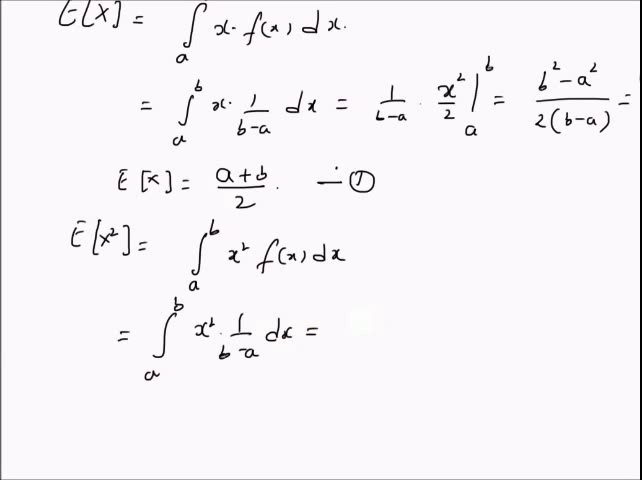 E[X] = ∫ₐ x·f(x) dx.
= ∫ₐᵇ x·1/(b-a) dx = 1/(b-a) · x²/2 |ₐᵇ = (b²-a²)/(2(b-a)) =
E[x] = (a+b)/2. — ①
E[x²] = ∫ₐᵇ x² f(x) dx
= ∫ₐᵇ x²·1/(b-a) dx =